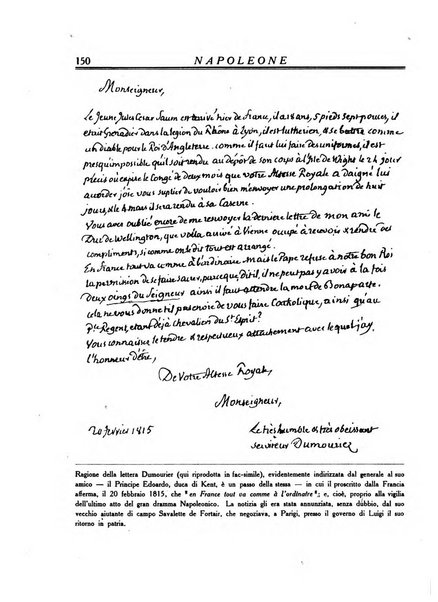 150 NAPOLEONE
Monseigneur,
Le Jeune Jules Cesar Saum est arrivé hier de France, il a 18 ans, 5 pieds sept pouces, il
etait Grenadier dans la legion du Rhône à Lyon, il est lutherien, il se battra comme
un diable pour le Roi d'Angleterre. comme il faut lui faire des uniformes, il est
presqu'impossible qu'il soit rendu au depôt de son corps à l'Isle de Wight le 24 jour
plus où expire le Congé de deux mois que votre Altesse Royale a daigné lui
accorder je vous suplie de vouloir bien m'envoyer une prolongation de huit
jours, et le 4 mars il sera rendu à sa Caserne.
Vous avez oublié encore de me renvoyer la derniere lettre de mon ami le
Duc de Wellington, que voila arrivé à Vienne occupé à recevoir et rendre des
compliments, si comme on dit tout est arrangé.
En France tout va comme à l'ordinaire. Mais le Pape refuse à notre bon Roi
la permission de se faire sacrer, parceque, dit il, il ne peut pas y avoir à la fois
deux oings du Seigneur ainsi il faut attendre la mort de Bonaparte.
cela ne vous donne til pas envie de vous faire Catholique, ainsi qu'au
Pce Regent, etant déjà Chevalier du St Esprit?
Vous connaissez le tendre et respectueux attachement avec lequel j'ay
l'honneur d'être,
De Votre Altesse Royale,
Monseigneur,
20 fevrier 1815
Le très humble et très obeissant
serviteur Dumouriez
Ragione della lettera Dumourier (qui riprodotta in fac-simile), evidentemente indirizzata dal generale al suo
amico — il Principe Edoardo, duca di Kent, è un passo della stessa — in cui il proscritto dalla Francia
afferma, il 20 febbraio 1815, che "en France tout va comme à l'ordinatre"; e, cioè, proprio alla vigilia
dell'ultimo atto del gran dramma Napoleonico. La notizia gli era stata annunziata, senza dùbbio, dal suo
vecchio aiutante di campo Savalette de Fortair, che negoziava, a Parigi, presso il governo di Luigi il suo
ritorno in patria.